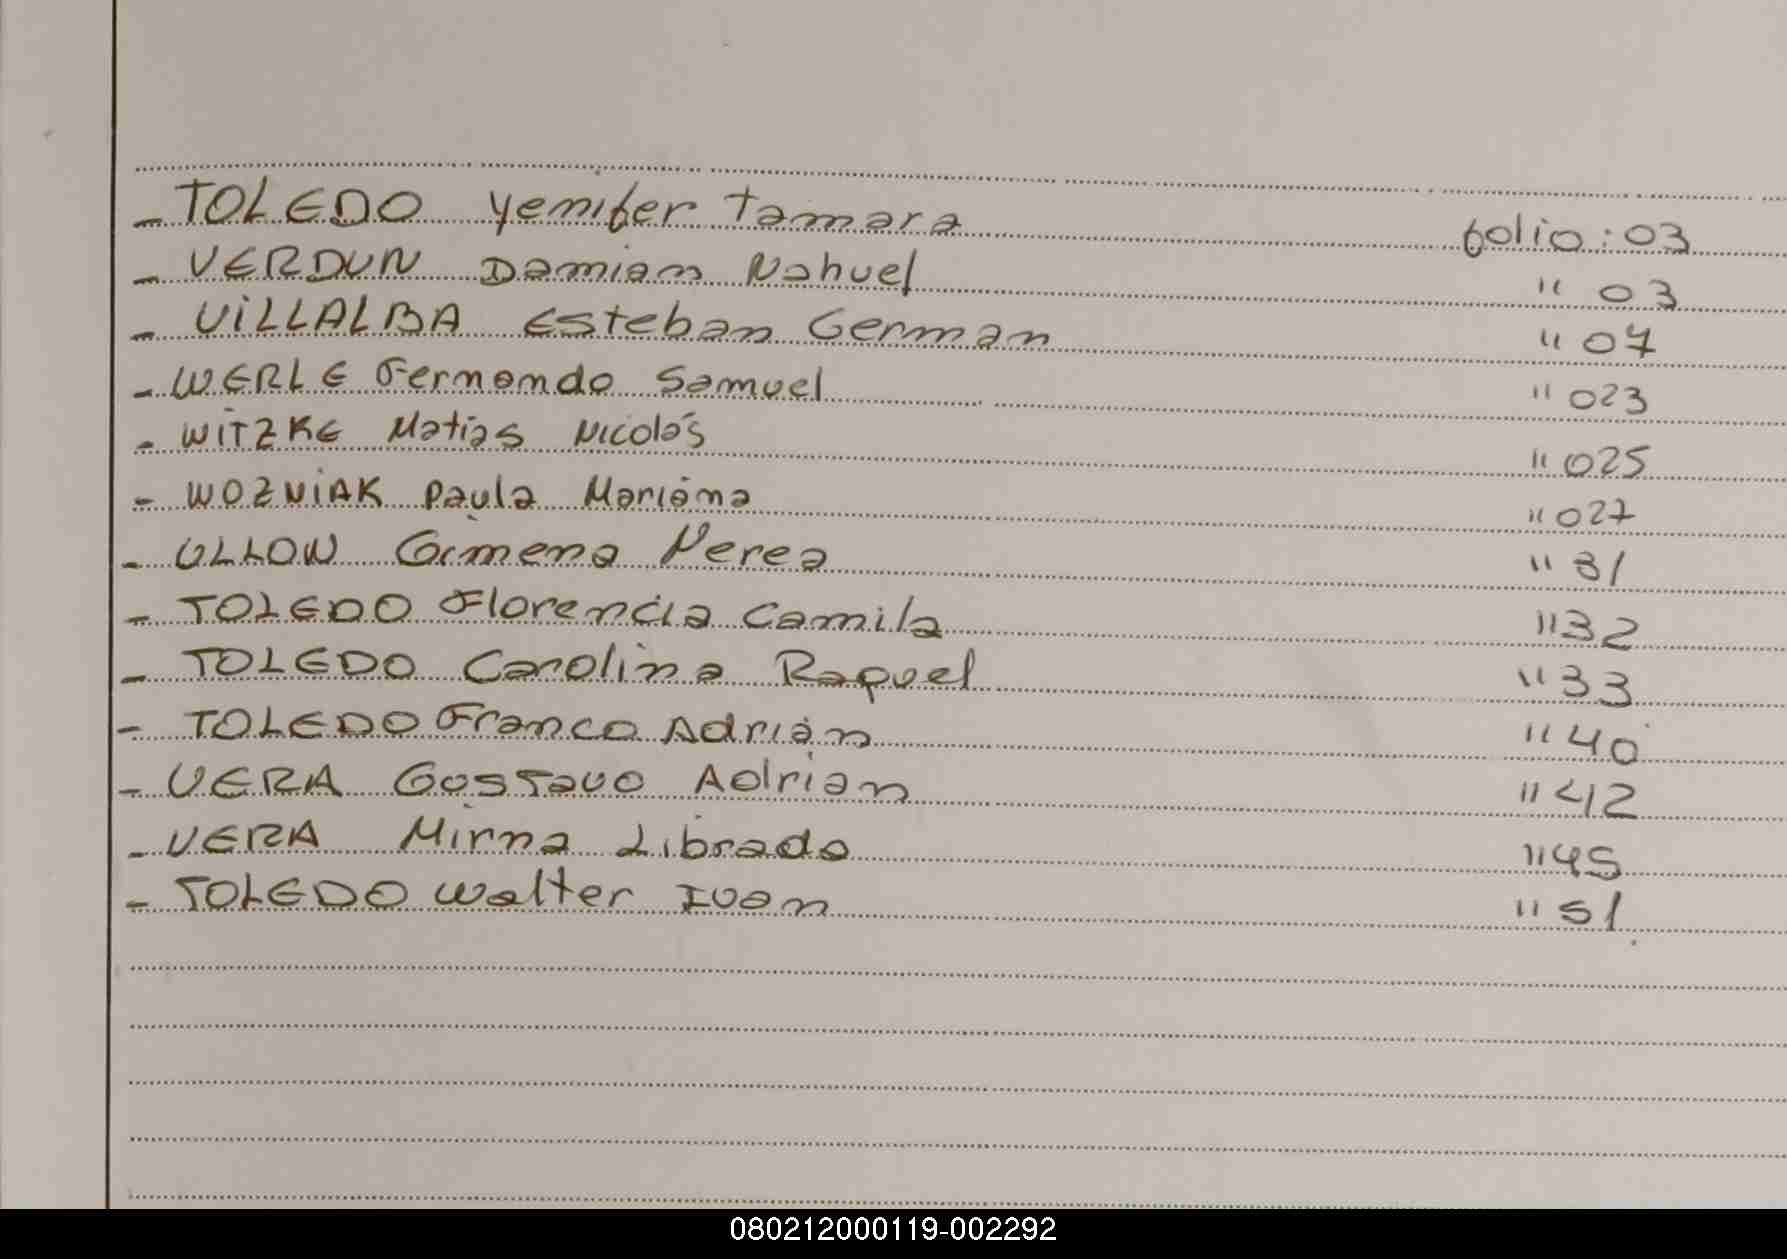 - TOLEDO Yenifer Tamara folio: 03
- VERDUN Damian Nahuel " 03
- VILLALBA Esteban German " 07
- WERLE Fernando Samuel " 023
- WITZKE Matias Nicolás " 025
- WOZNIAK Paula Mariana " 027
- ULLON Gimena Nerea " 31
- TOLEDO Florencia Camila " 32
- TOLEDO Carolina Raquel " 33
- TOLEDO Franco Adrián " 40
- VERA Gustavo Adrian " 42
- VERA Mirna Librada " 45
- TOLEDO Walter Ivan " 51
080212000119-002292